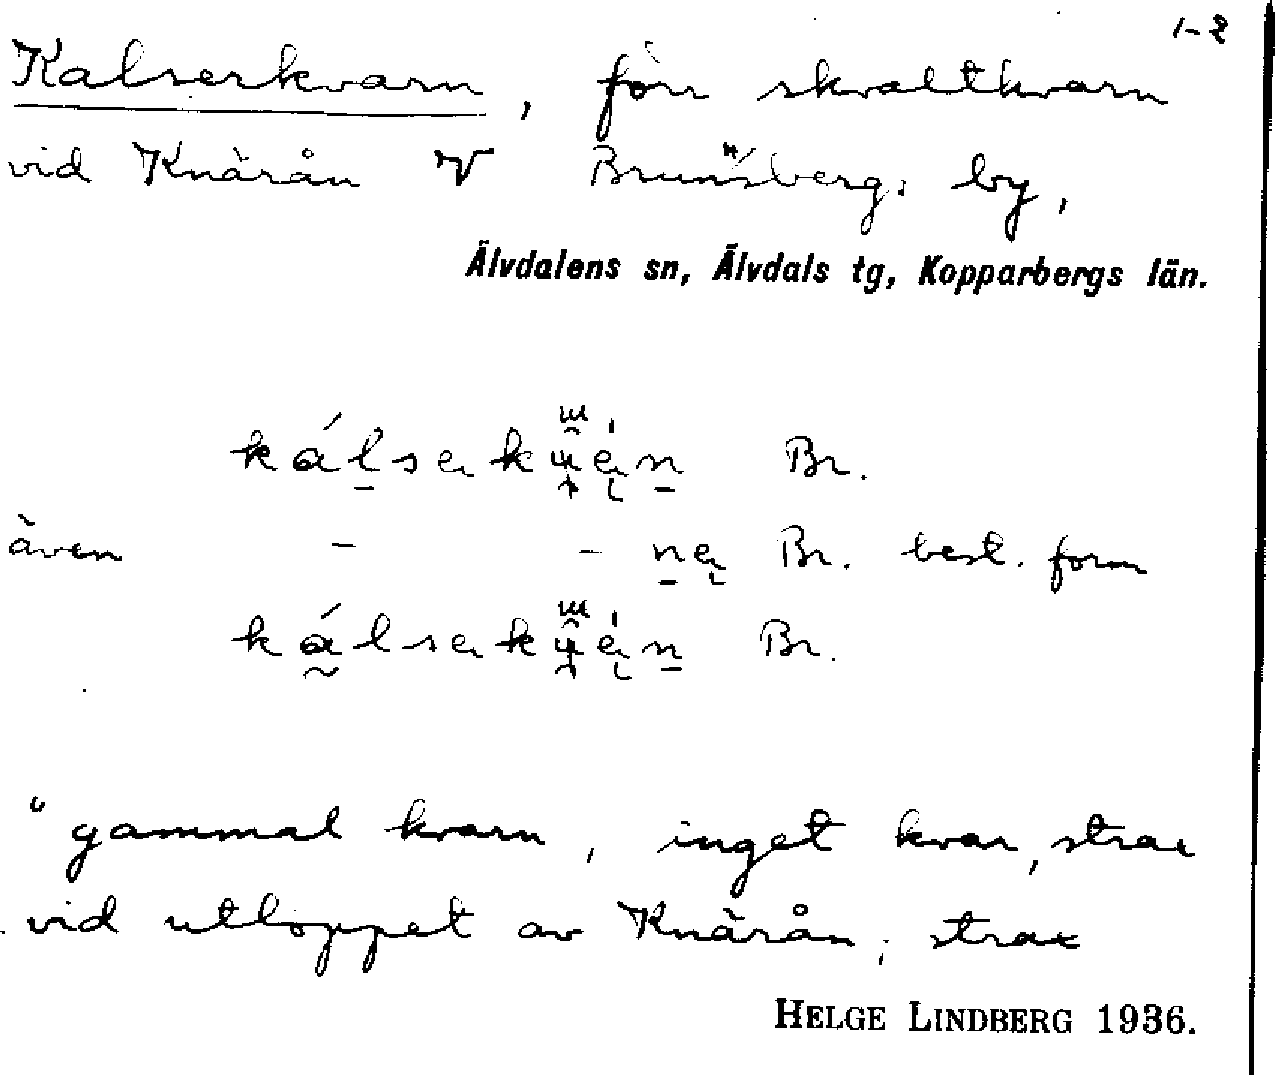 1-2
Kalserkvarn, förr skvaltkvarn
vid Knärån V Brunnsbergs by,
Älvdalens sn, Älvdals tg, Kopparbergs län.
Br.
även - - Br. best. form
Br.
"gammal kvarn, inget kvar, strax
vid utloppet av Knärån, strax
HELGE LINDBERG 1936.